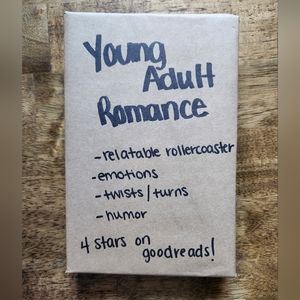 Young
Adult
Romance
-relatable rollercoaster
-emotions
-twists/turns
-humor
4 stars on
goodreads!